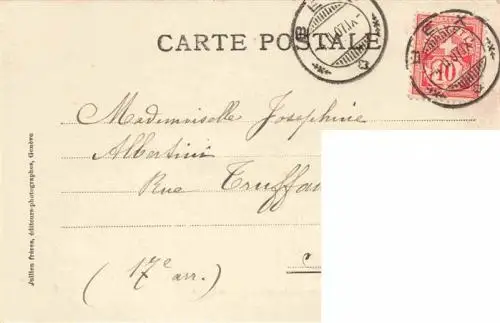 BEX
BEX
10
CARTE POSTALE
Mademoiselle Josephine
Albertini
Rue Truffau
(17e arr.)
Jullien frères, éditeurs-photographes, Genève